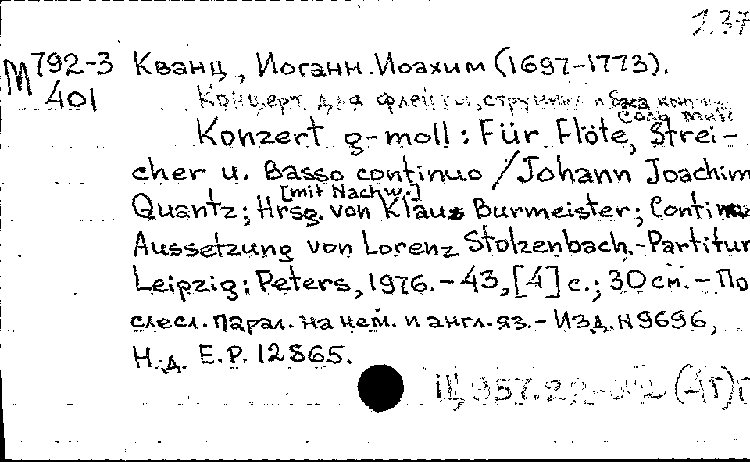 1.37
М 792-3 Кванц, Иоганн Иоахим (1697-1773).
401 Концерт для флейты, струнных и баса контин.
соль мин
Konzert g-moll: Für Flöte, Strei-
cher u. Basso continuo / Johann Joachim
[mit Nachw.]
Quantz; Hrsg. von Klaus Burmeister; Contin
Aussetzung von Lorenz Stolzenbach.-Partitur
Leipzig: Peters, 1976.-43, [4] с.; 30 см. - По
слесл. парал. на нем. и англ. яз. - Изд. N 9696,
Н.д. E.P. 12865.
Щ 957.22